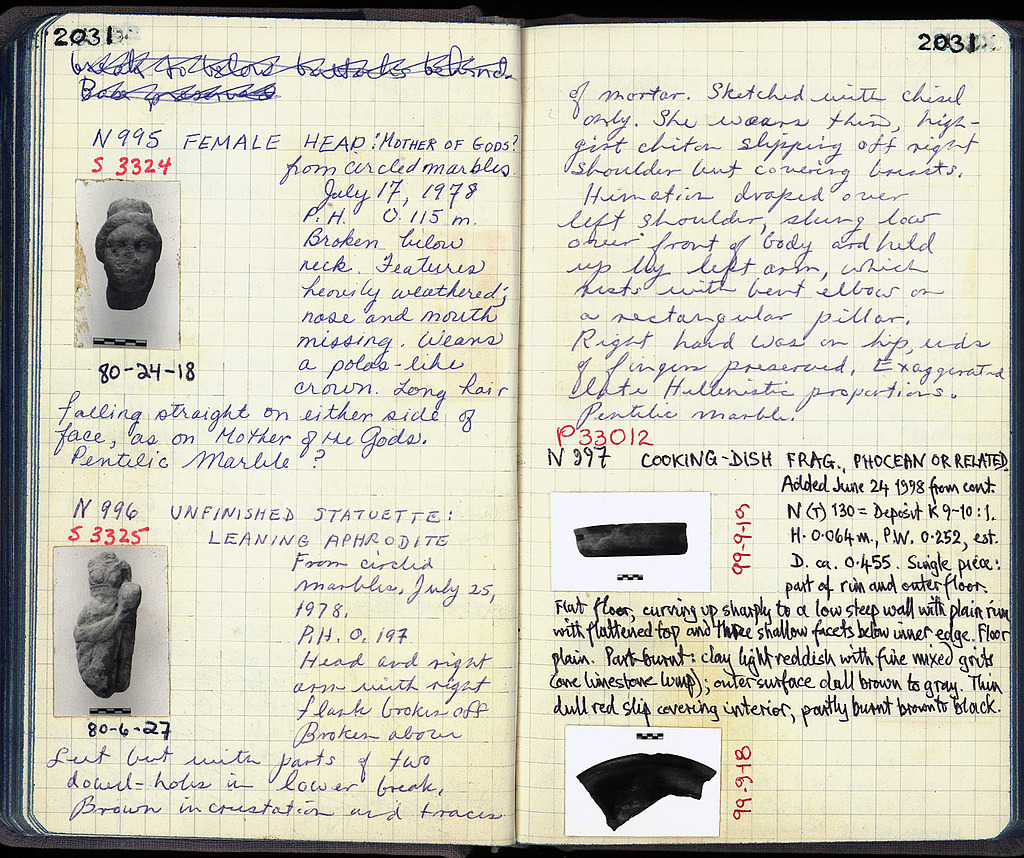 2031
break to below buttocks behind.
Base preserved
N 995 FEMALE HEAD: MOTHER OF GODS?
S 3324
from circled marbles
July 17, 1978
P.H. 0.115 m.
Broken below
neck. Features
heavily weathered;
nose and mouth
missing. Wears
a polos-like
crown. Long hair
80-24-18
falling straight on either side of
face, as on Mother of the Gods.
Pentelic Marble?
N 996 UNFINISHED STATUETTE:
S 3325
LEANING APHRODITE
From circled
marbles, July 25,
1978.
P.H. 0.197
Head and right
arm with right
flank broken off
Broken above
80-6-27
feet but with parts of two
dowel-holes in lower break.
Brown incrustation and traces
2031
of mortar. Sketched with chisel
only. She wears thin, high-
girt chiton slipping off right
shoulder but covering breasts.
Himation draped over
left shoulder, slung low
over front of body and held
up by left arm, which
rests with bent elbow on
a rectangular pillar.
Right hand was on hip, ends
of fingers preserved. Exaggerated
late Hellenistic proportions.
Pentelic marble.
P33012
N 997 COOKING-DISH FRAG., PHOCEAN OR RELATED
Added June 24 1998 from cont.
N (T) 130 = Deposit K 9-10:1.
H. 0.064 m., P.W. 0.252, est.
D. ca. 0.455. Single piece:
part of rim and outer floor.
99-9-19
Flat floor, curving up sharply to a low steep wall with plain rim
with flattened top and three shallow facets below inner edge. Floor
plain. Part-burnt: clay light reddish with fine mixed grits
(one limestone lump); outer surface dull brown to gray. Thin
dull red slip covering interior, partly burnt brown to black.
99-9-18